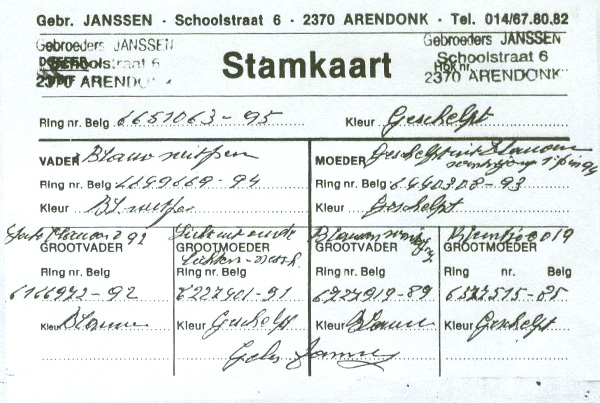 Gebr. JANSSEN · Schoolstraat 6 · 2370 ARENDONK · Tel. 014/67.80.82
Gebroeders JANSSEN
Schoolstraat 6
2370 ARENDONK
Stamkaart
Gebroeders JANSSEN
Schoolstraat 6
Hok nr.
2370 ARENDONK
Ring nr. Belg 6651063-95 Kleur Geschelpt
VADER Blauw witpen
Ring nr. Belg 6649669-94
Kleur Bl. witpen
MOEDER Geschelpt uit
Ring nr. Belg 6440308-93
Kleur Geschelpt
92
GROOTVADER
Ring nr. Belg
6166972-92
Kleur Blauw
GROOTMOEDER
Ring nr. Belg
6227401-91
Kleur Geschelpt
GROOTVADER
Ring nr. Belg
6227919-89
Kleur Blauw
019
GROOTMOEDER
Ring nr. Belg
6522515-85
Kleur Geschelpt
Gebr Janssen